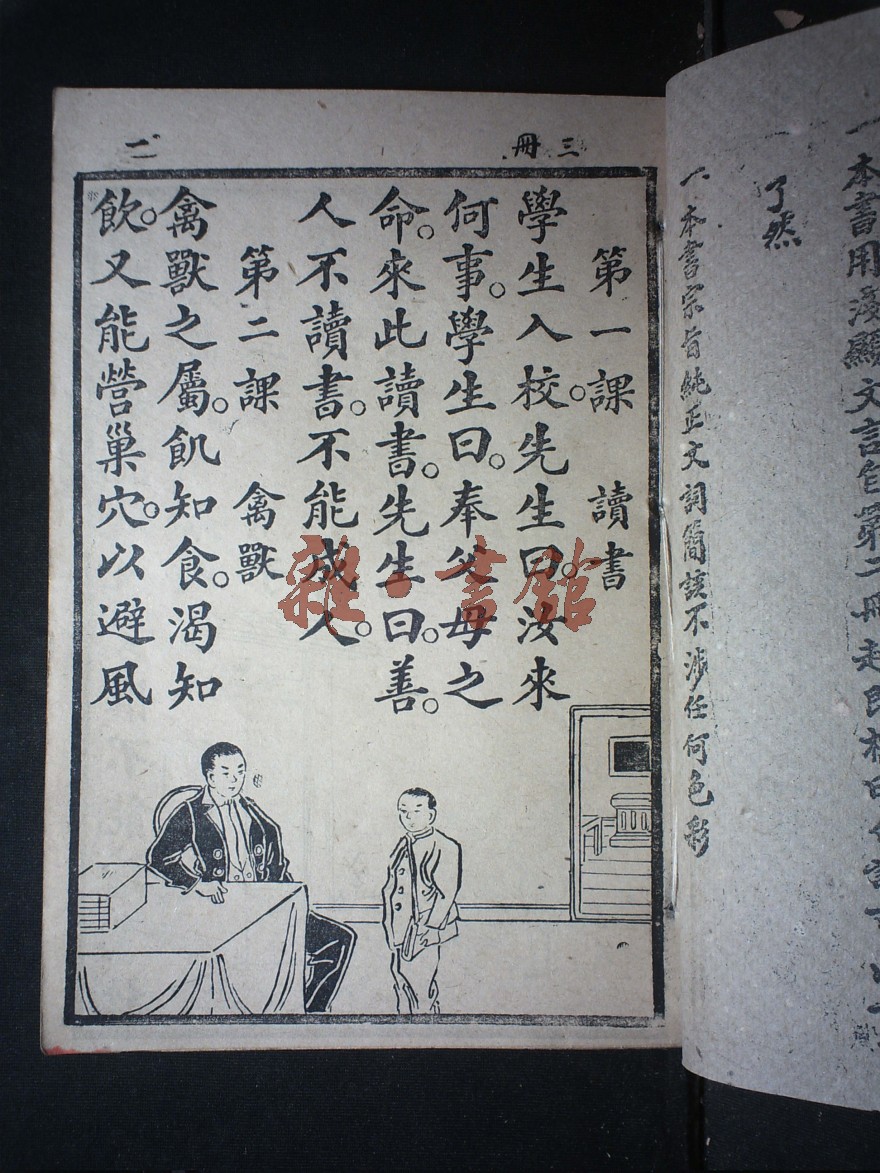 一 本書用淺顯文言自第二冊起
了然
一 本書宗旨純正文詞簡該不涉任何色彩
三冊
二
第一課 讀書
學生入校。先生曰。汝來
何事。學生曰。奉父母之
命。來此讀書。先生曰。善。
人不讀書。不能成人。
第二課 禽獸
禽獸之屬。飢知食。渴知
飲。又能營巢穴。以避風
雜·書館